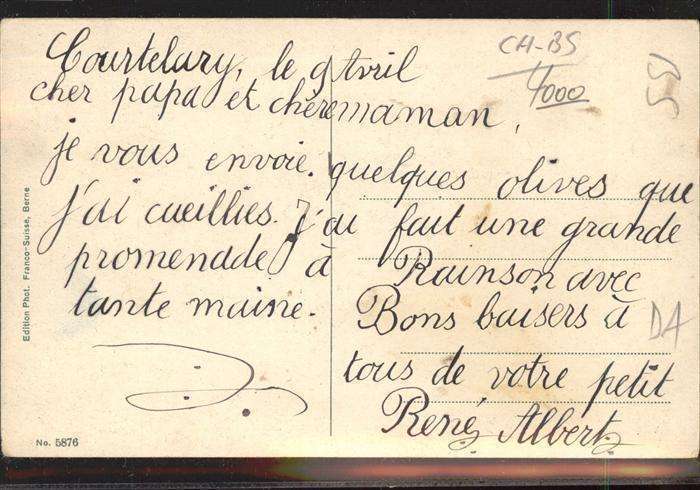 Courtelary, le 9 Avril
cher papa et chère maman,
je vous envoie quelques olives que
j'ai cueillies. J'ai fait une grande
promenadde à Rainson avec
tante maine. Bons baisers à
tous de votre petit
René Albert
CH-BS
4000
BS
DA
Edition Phot. Franco-Suisse, Berne
No. 5876